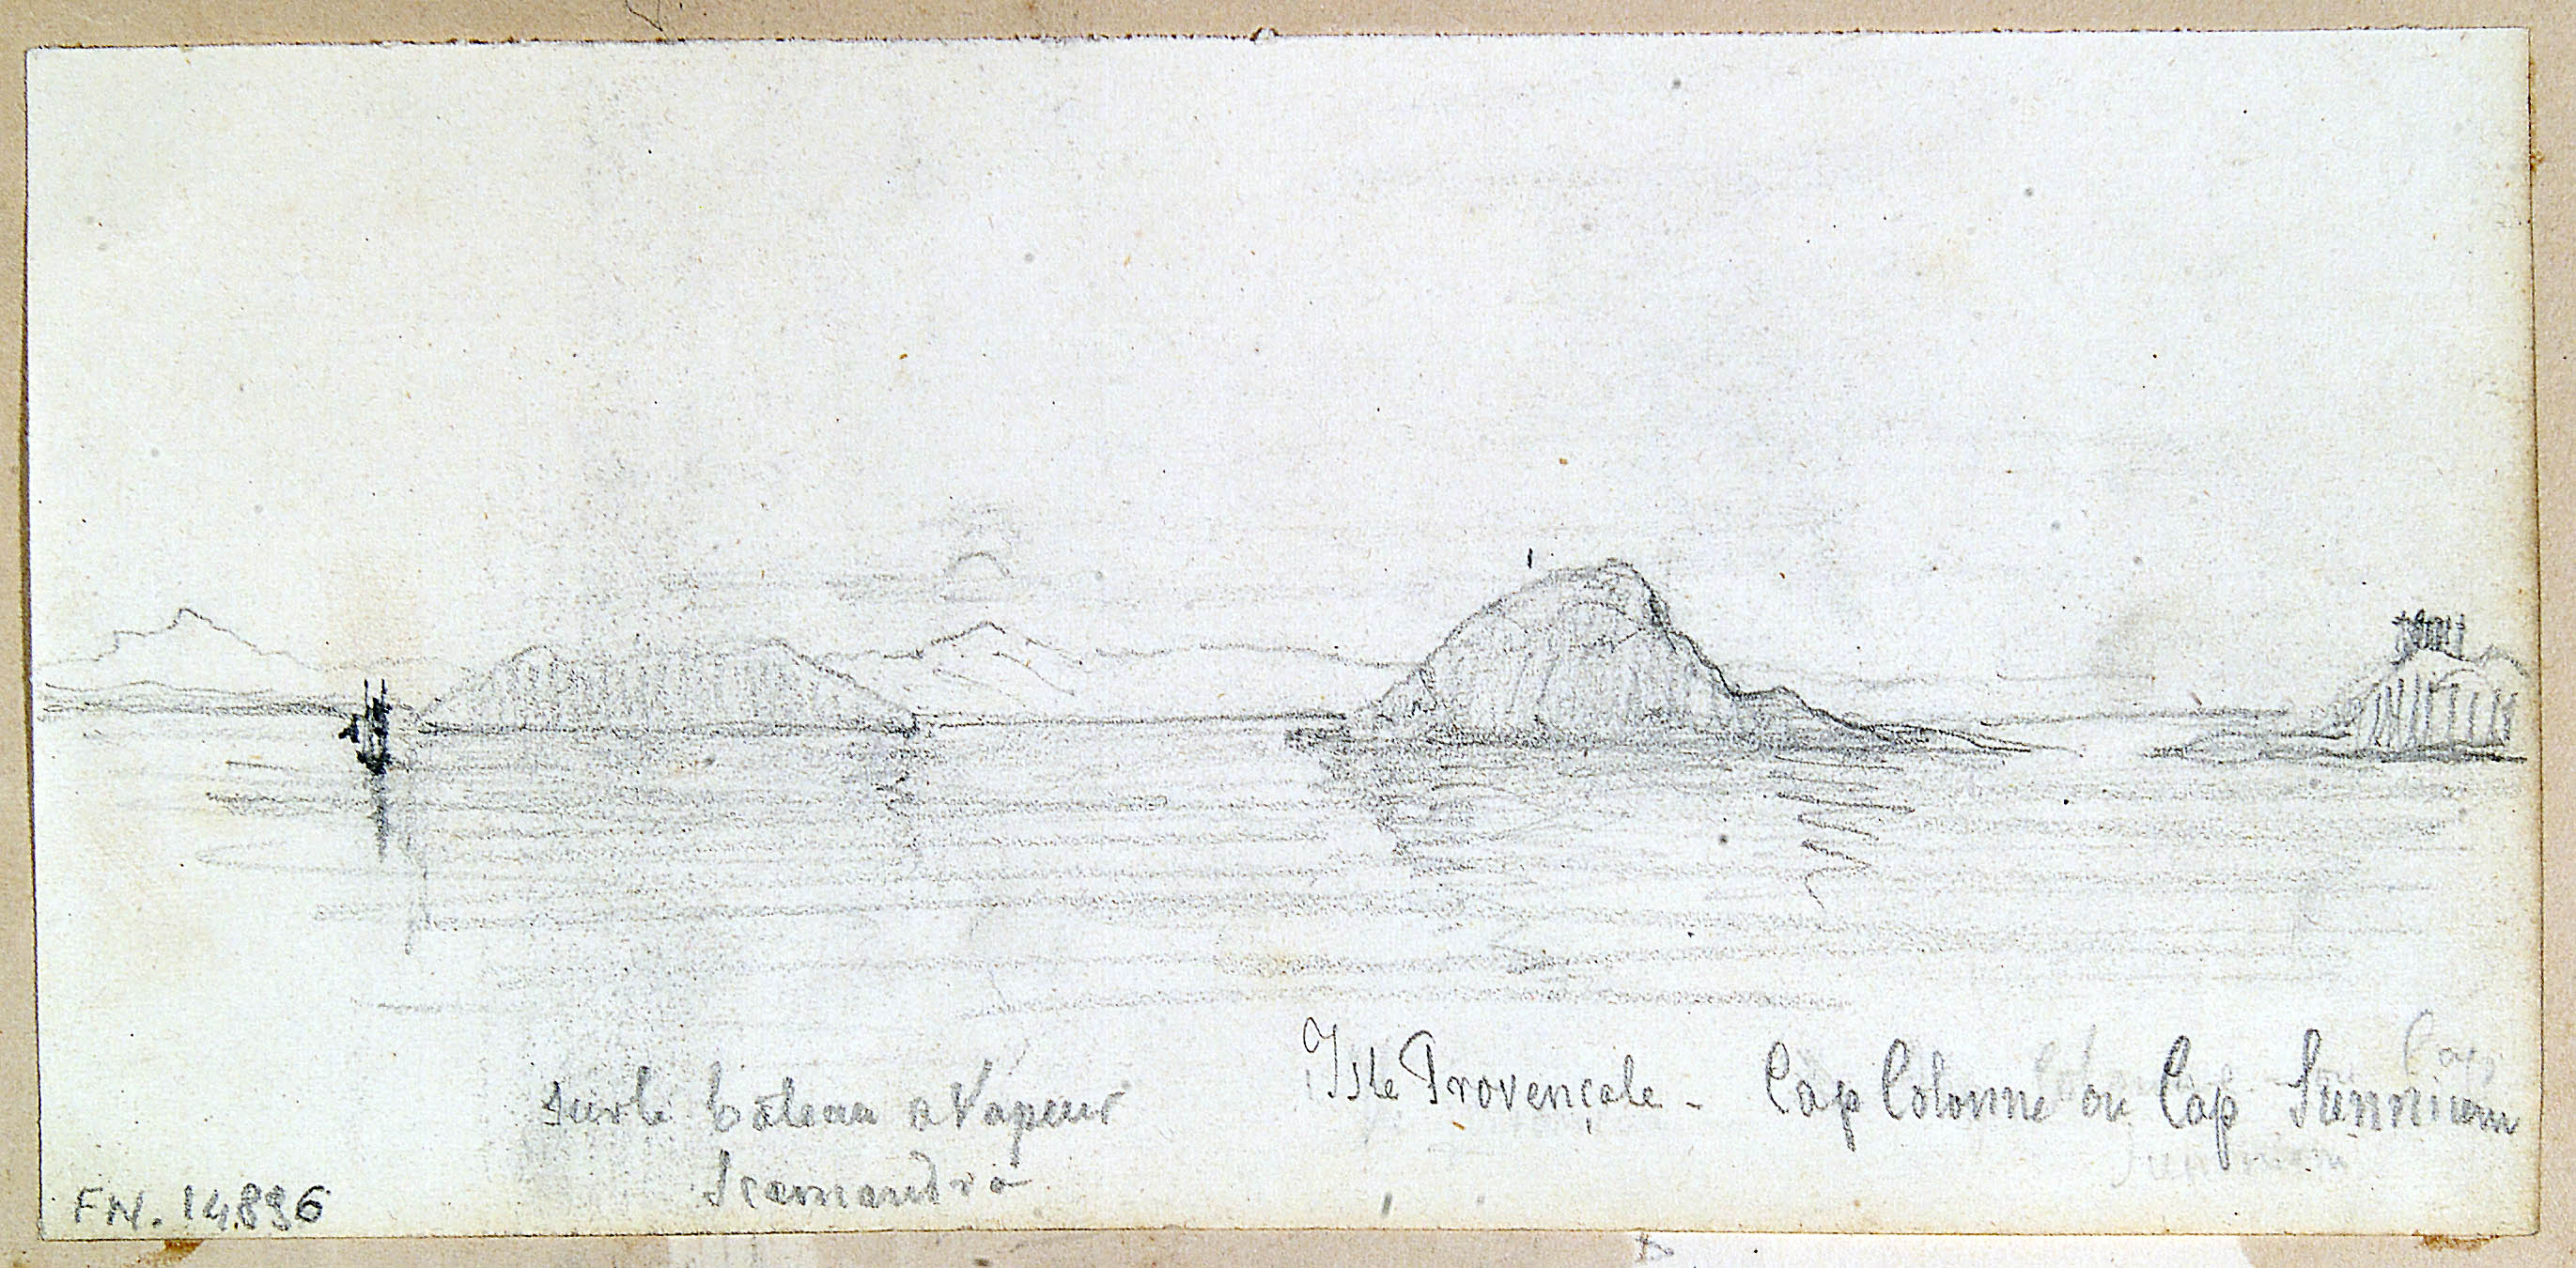 Isle Provençale - Cap Colonne ou Cap Sunnium
sur le bateau a Vapeur
Scamandre
FN. 14.896